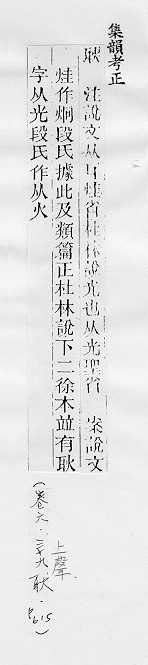 集韻考正
耿 注說文从耳烓省杜林說光也从光聖省 案說文
烓作烱段氏據此及類篇正杜林說下二徐木並有耿
字从光段氏作从火
上聲
(卷六·三十九耿·P615)